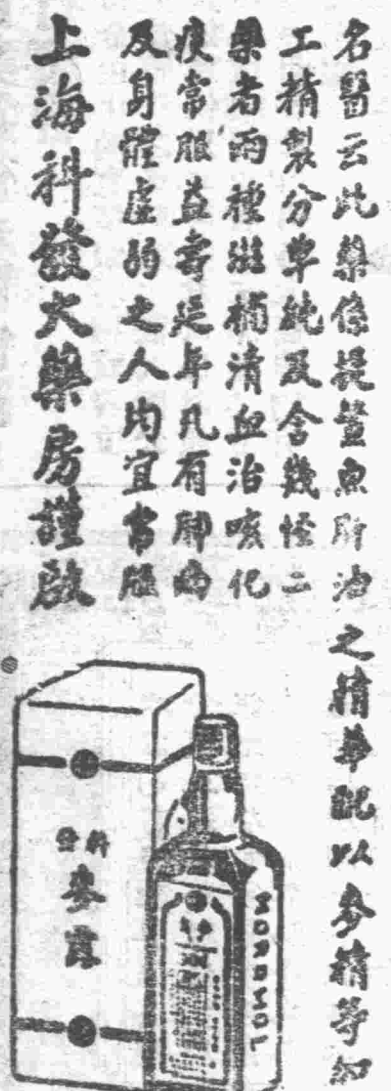 名醫云此藥係提鰵魚肝油之精華配以麥精等加
工精製分單純及含幾怪二
藥者兩種滋補清血治咳化
痰常服益壽延年凡有肺病
及身體虛弱之人均宜常服
上海科發大藥房謹啟
科發
麥露
MOROMOL